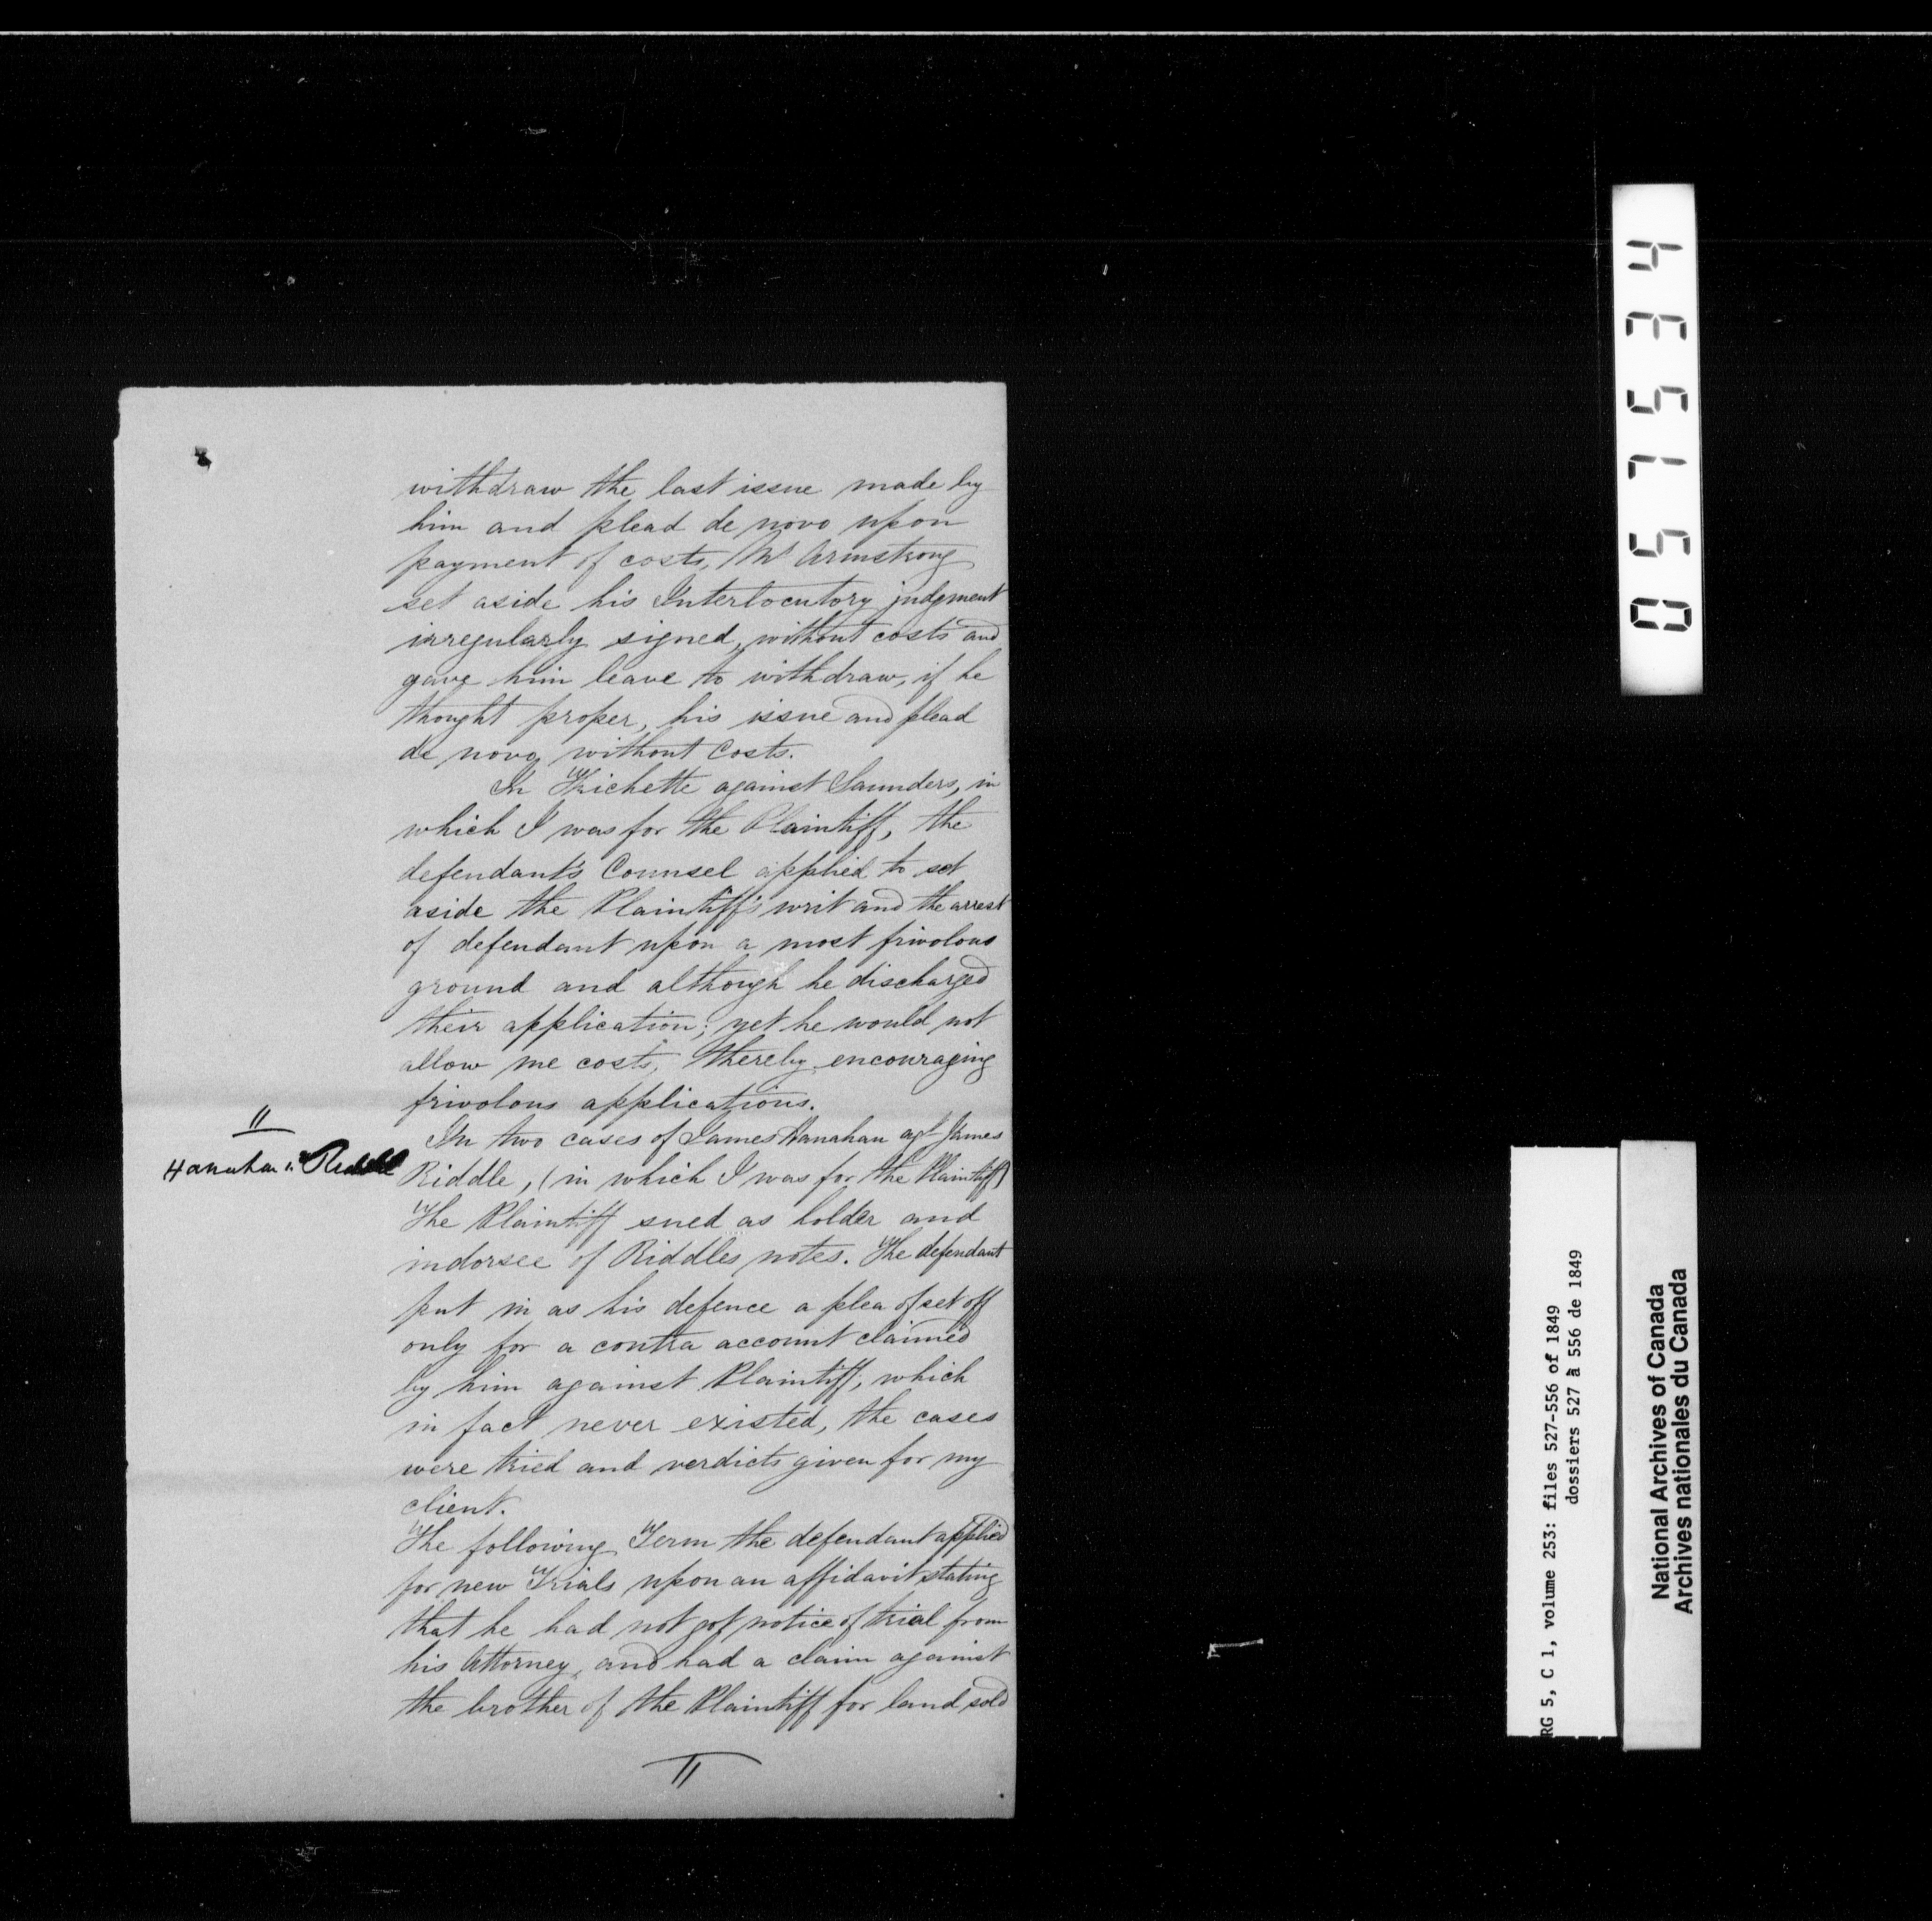 withdraw the last issue made by
him and plead de novo upon
payment of costs, Mr Armstrong
set aside his Interlocutory judgment
irregularly signed, without costs and
gave him leave to withdraw, if he
thought proper, his issue and plead
de novo, without Costs.
In Trichette against Saunders, in
which I was for the Plaintiff, the
defendant's Counsel applied to set
aside the Plaintiff's writ and the arrest
of defendant upon a most frivolous
ground and although he discharged
their application; yet he would not
allow me costs, thereby encouraging
frivolous applications.
11
Hanahan vs Riddle
In two cases of James Hanahan agt James
Riddle, (in which I was for the Plaintiff)
The Plaintiff sued as holder and
indorsee of Riddles notes. The defendant
put in as his defence a plea of set off
only for a contra account claimed
by him against Plaintiff, which
in fact never existed, the cases
were tried and verdicts given for my
client.
The following Term the defendant applied
for new Trials upon an affidavit stating
that he had not got notice of trial from
his Attorney, and had a claim against
the brother of the Plaintiff for land sold
11
057534
RG 5, C 1, volume 253: files 527-556 of 1849
dossiers 527 à 556 de 1849
National Archives of Canada
Archives nationales du Canada